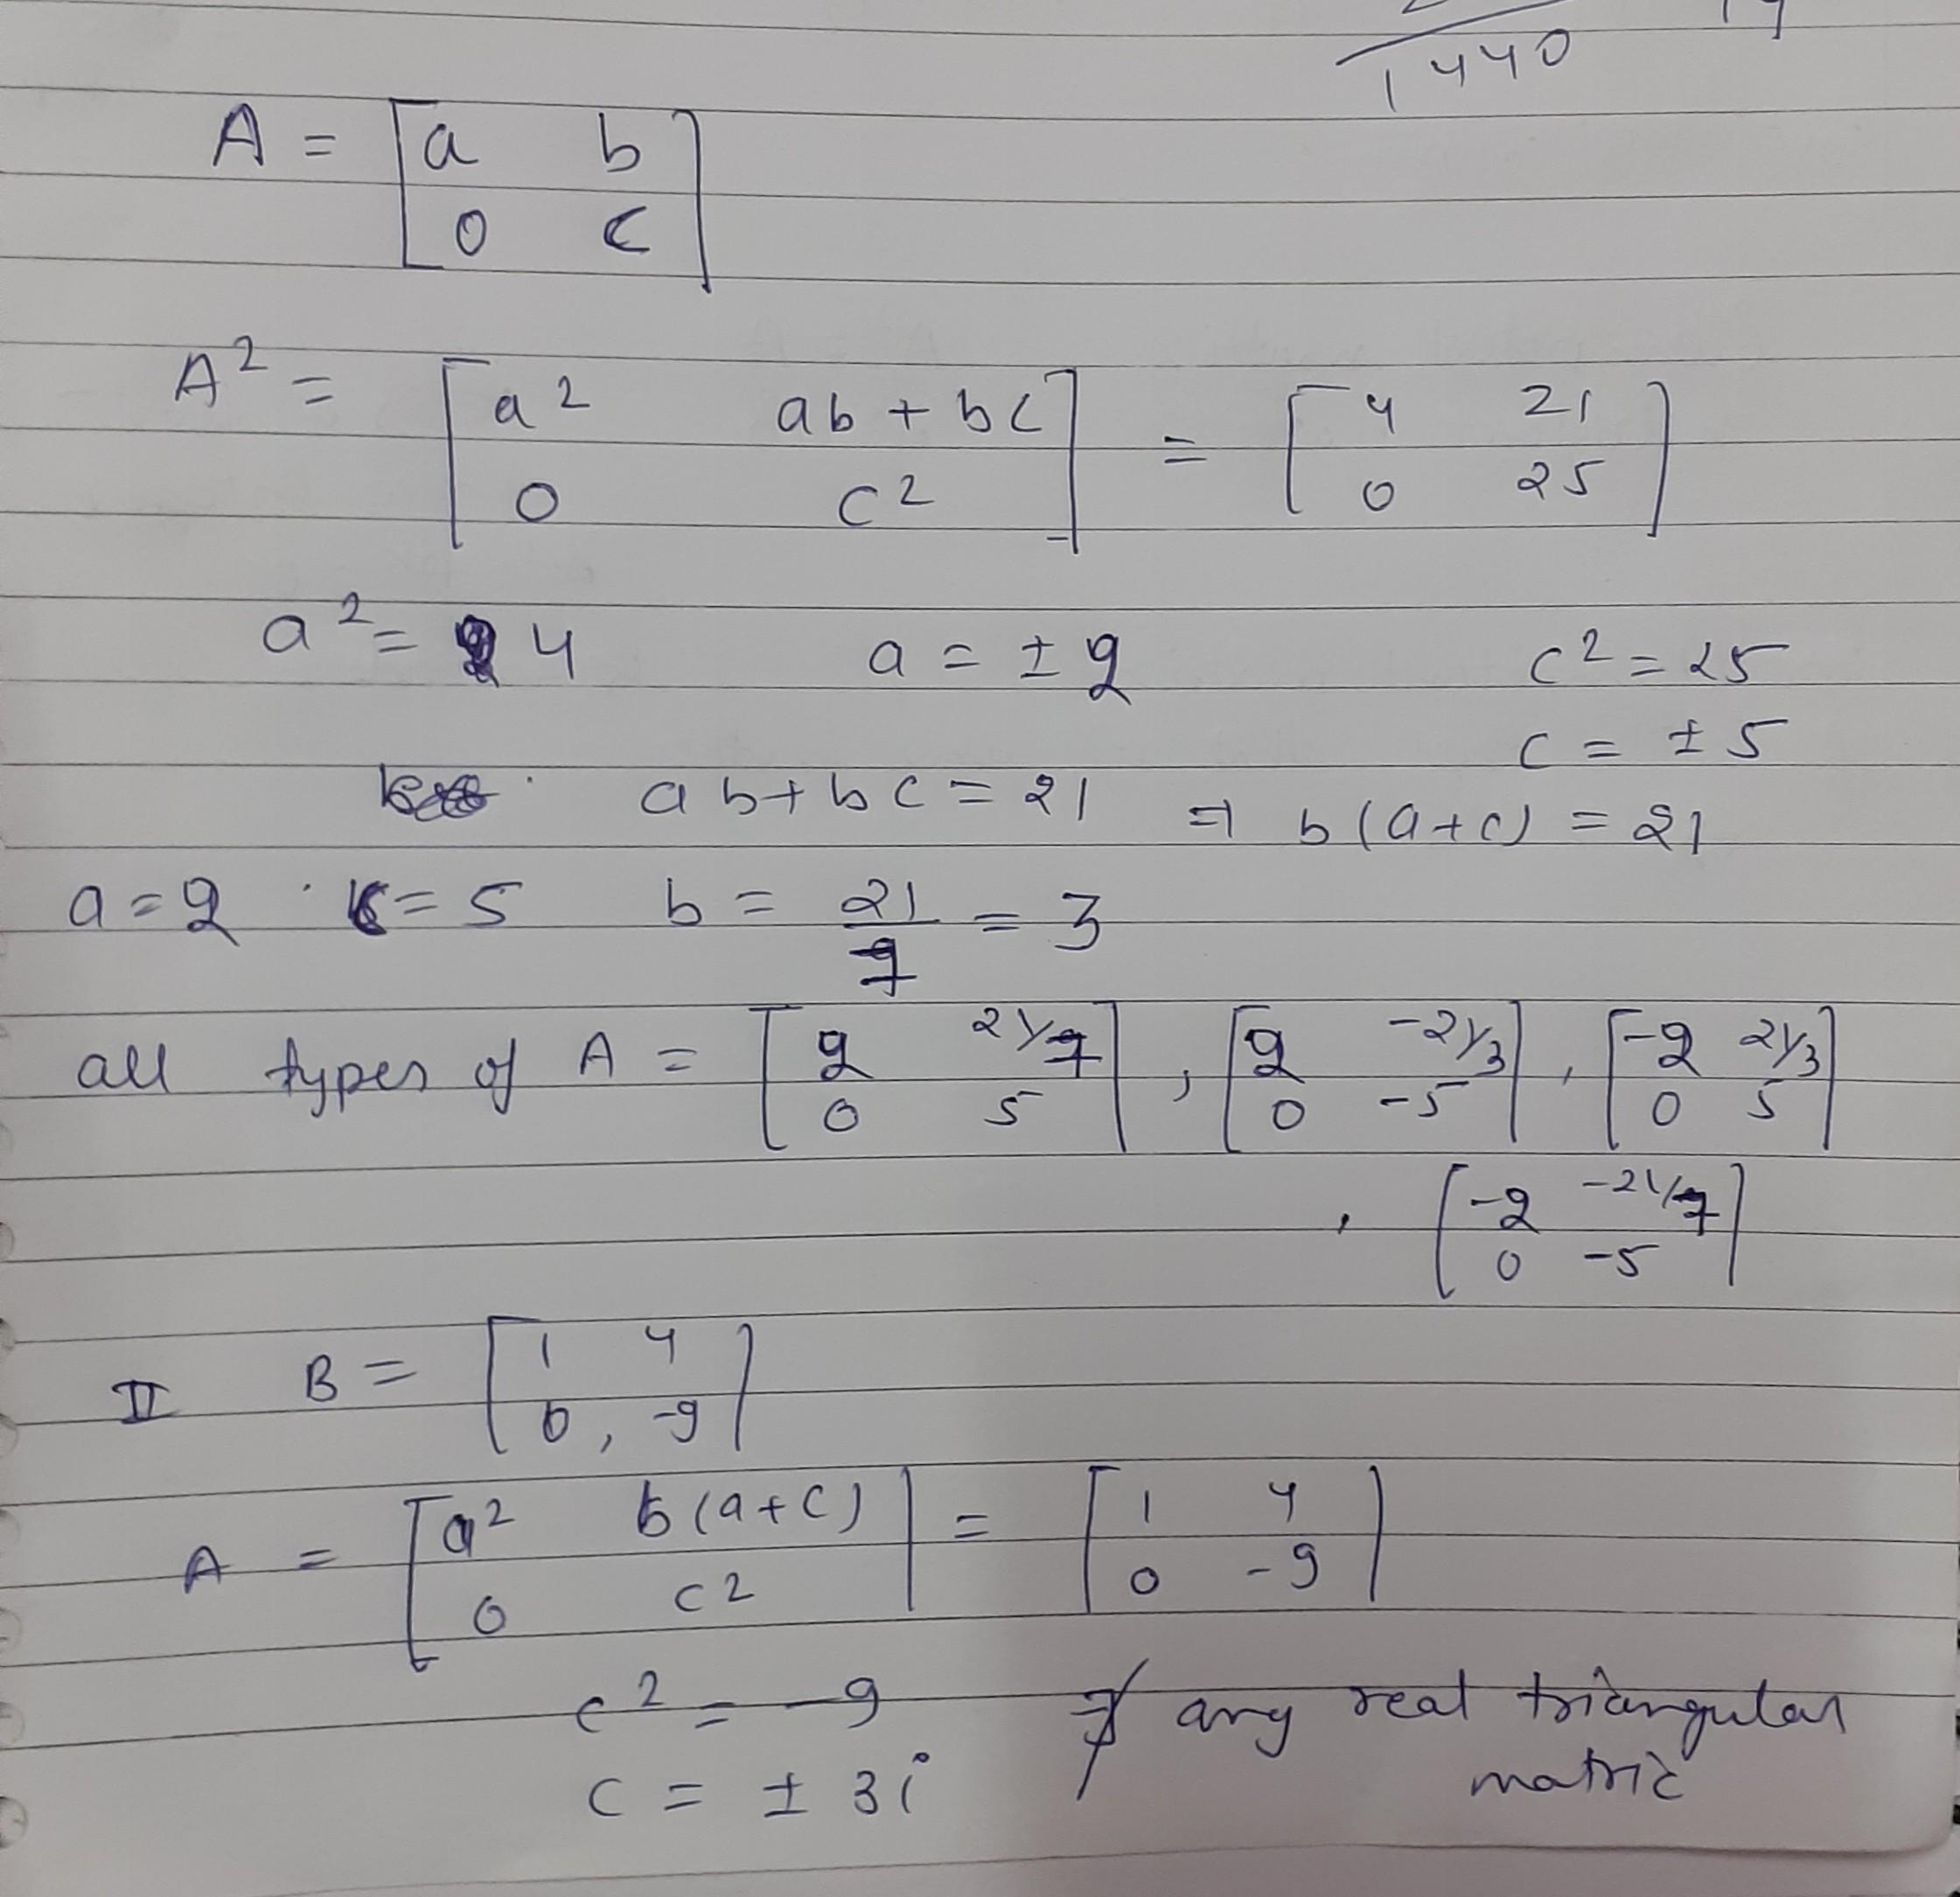 1440
A = [a b
0 c]
A² = [a² ab + bc
0 c²] = [4 21
0 25]
a² = 4 a = ± 2 c² = 25
c = ± 5
ab + bc = 21 ⇒ b(a+c) = 21
a = 2 c = 5 b = 21/7 = 3
all types of A = [2 21/7
0 5], [2 -21/3
0 -5], [-2 21/3
0 5]
, [-2 -21/7
0 -5]
II B = [1 4
0, -9]
A = [a² b(a+c)
0 c²] = [1 4
0 -9]
c² = -9 ∄ any real triangular
c = ± 3i matric